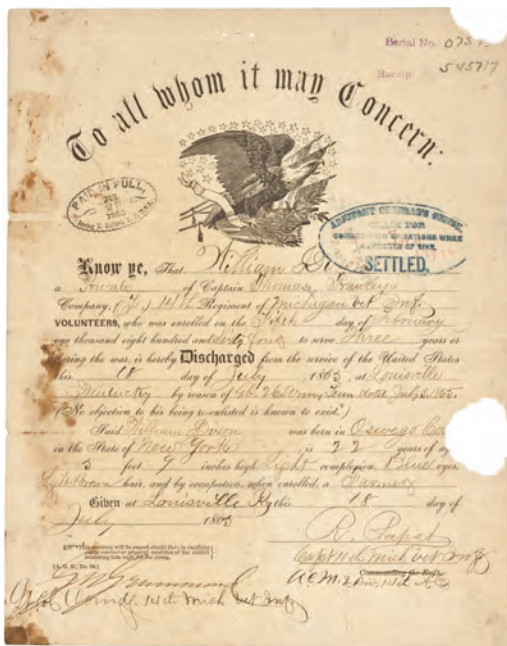 Serial No. 075
Receipt 545717
To all whom it may Concern:
PAID IN FULL,
ADJUTANT GENERAL'S OFFICE.
CLAIM FOR
COMMUTATION OF RATIONS WHILE
PRISONER OF WAR.
SETTLED.
Know ye, That William
a Private of Captain Thomas
Company, 14th Regiment of Michigan vet Inf.
VOLUNTEERS, who was enrolled on the day of February
one thousand eight hundred and sixty four to serve Three years or
during the war, is hereby Discharged from the service of the United States
this 18 day of July, 1865, at Louisville
Kentucky by reason of dated July 3. 1865.
(No objection to his being re-enlisted is known to exist.)
Said William Dixon was born in Oswego
in the State of New York is 22 years of
5 feet 9 inches high, Light complexion, Blue eyes,
Brown hair, and by occupation, when enrolled, a Farmer
Given at Louisville Ky this 18 day of
July 1865
Capt 14th Mich vet Inf
Commanding the Reg't.
A.C.M. 2 Div. 14th A.C.
[A. G. O., No. 99.]
Comdg. 14th Mich vet Inf